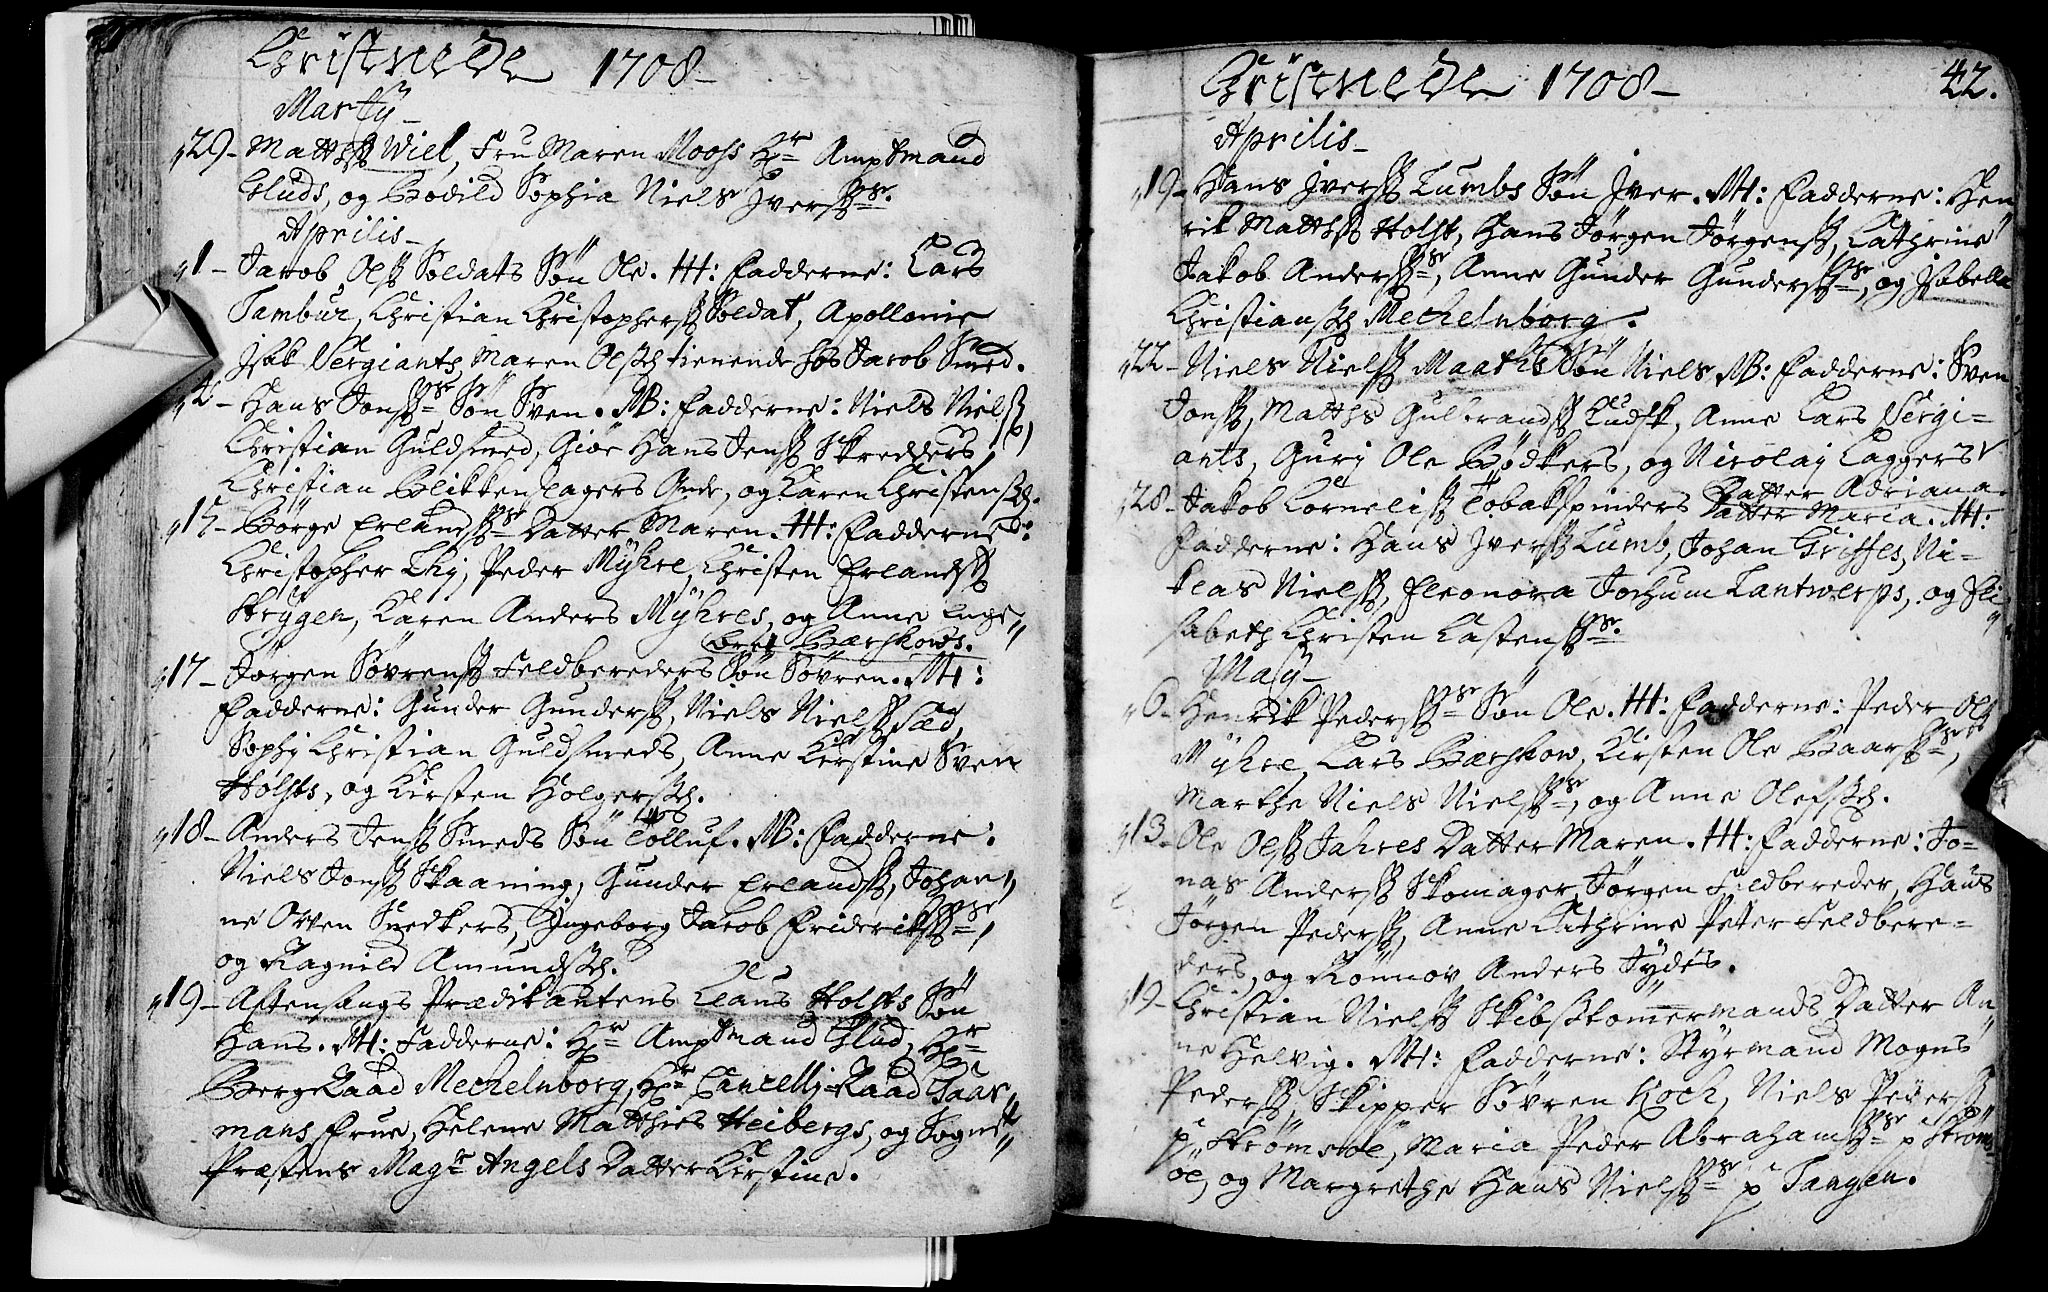 Christnede 1708
Martij
29 - Mattss Wiel, Fru Maren Moess Hr Amptmand
Gluds, og Bodild Sophia Niels Iverss.
Aprilis
1 - Jacob Olss Soldats Søn Ole. H: Fadderne: Lars
Tambur, Christian Christopherss Soldat, Apollonie
Isak Sergiants, Maren Olsd. tienende hos Jacob Smed.
2 - Hans Jonss Søn Sven. B: Fadderne: Niels Nielss
Christian Guldsmed, Giøe Hans Jenss Skredders,
Christian Blikkenslagers, og Karen Christensd.
15 - Børge Erlandss Datter Maren. H: Fadderne:
Christopher Thj, Peder Myhre, Christen Erlandss
Skrygen, Karen Anders Myhres, og Anne Enge
bret Bærskows.
17 - Jørgen Søvrenss Feldbereders Søn Søvren. M:
Fadderne: Gunder Gunderss, Niels Nielss Sæd,
Sophj Christian Guldsmeds, Anne Kirstine Sven
Holsts, og Kirsten Holgersd.
18 - Anders Jenss Smeds Søn Tolluf. B: Fadderne:
Niels Jonss Skaaning, Gunder Erlandss, Johan
ne Oven Snedkers, Ingeborg Jacob Friderikss,
og Ragnild Amundsd.
19 - Aftensangs Prædikantens Claus Holsts Søn
Hans. M: Fadderne: Hr Amptmand Glud, Hr
BergRaad Mechelnborg, Hr CancelljRaad Taar
mans Frue, Helene Matthies Heibergs, og Sogne
Præstens Magr Angels Datter Kirstine.
Christnede 1708
42.
Aprilis
19 - Hans Iverss Lumbs Søn Iver. M: Fadderne: Hen
rik Mattss Holst, Hans Jørgen Jørgenss, Cathrine
Jakob Anderss, Anne Gunder Gunderss, og Isabella
Christiansd Mechelnborg.
22 - Niels Nielss Maaths Søn Niels B: Fadderne: Sven
Jonss, Matths Gulbrandss, Anne Lars Sergi=
ants, Gurj Ole Bødkers, og Nicolaj Laggers
28 - Jakob Corneliss Tobakspinders Datter Adriana
Datter Maria. H:
Fadderne: Hans Iverss Lumb, Johan Griffes, Ni=
klas Nielss, Eleonora Jochum Lantwerps, og Eli
sabeth Christen Castenss.
Maij
6 - Henrik Pederss Søn Ole. H: Fadderne: Peder Ols
Myhre, Lars Bærskow, Kirsten Ole Baarss,
Marthe Niels Nielss, og Anne Olefsd.
13 - Ole Olss Jahres Datter Maren. H: Fadderne: Jo=
nas Anderss Skomager, Jørgen Feldbereder, Hans
Jørgen Pederss, Anne Cathrine Peter Feldbere=
ders, og Rønnov Anders Jydes.
19 - Christian Nielss Skibstømermands Datter An
ne Helvig. M: Fadderne: Styrmand Mogns
Pederss, Skipper Søvren Koch, Niels Pederss
p Strømsøe, Maria Peder Abrahamss p Strøms
øe, og Margrethe Hans Nielss p Tangen.